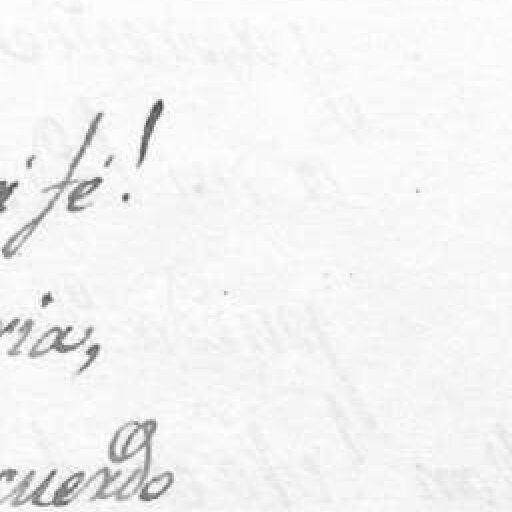 fé!
ria,
cuerdo